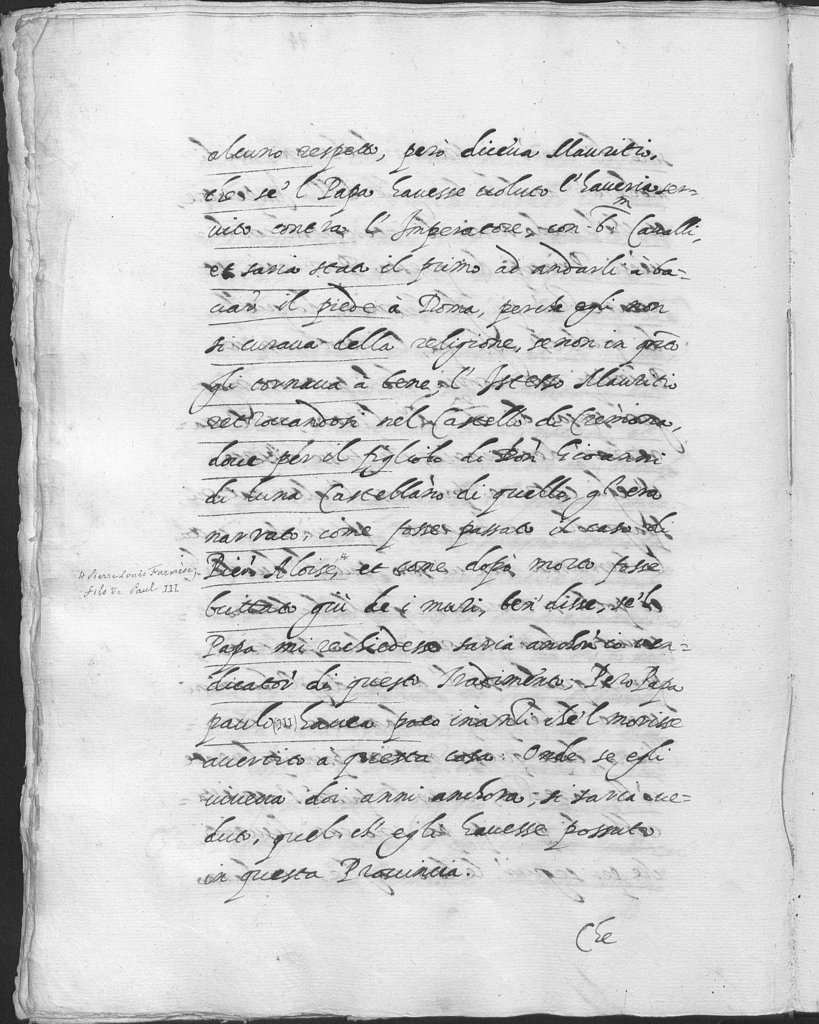 alcuno respetto, però diceua Mauritio,
che se'l Papa hauesse uoluto l'haueria ser-
uito contra l'Imperatore, con Caualli,
et saria stato il primo ad andarli à ba-
ciar il piede à Roma, perche egli non
si curaua della religione, se non in q.to
gli tornaua à bene, l'Istesso Mauritio
retrouandosi nel Castello di Cremona,
doue per il figliolo di Don Giouanni
di Luna Castellano di quello, gl'era
narrato, come fosse passato il caso di
Pier Aloise, # et come dopò morto fosse
buttato giù de i muri, ben disse, se'l
Papa mi rechiedesse saria anchor io uen-
dicator di questo Tradimento, Pero Papa
paulo (III) hauea poco inanti che'l morisse
auertito a questa cosa. Onde se egli
uiueua doi anni anchora, si saria ue-
duto, quel ch'egli hauesse possuto
in questa Prouincia.
Che
# Pierre Louis Farnese,
fils de Paul III